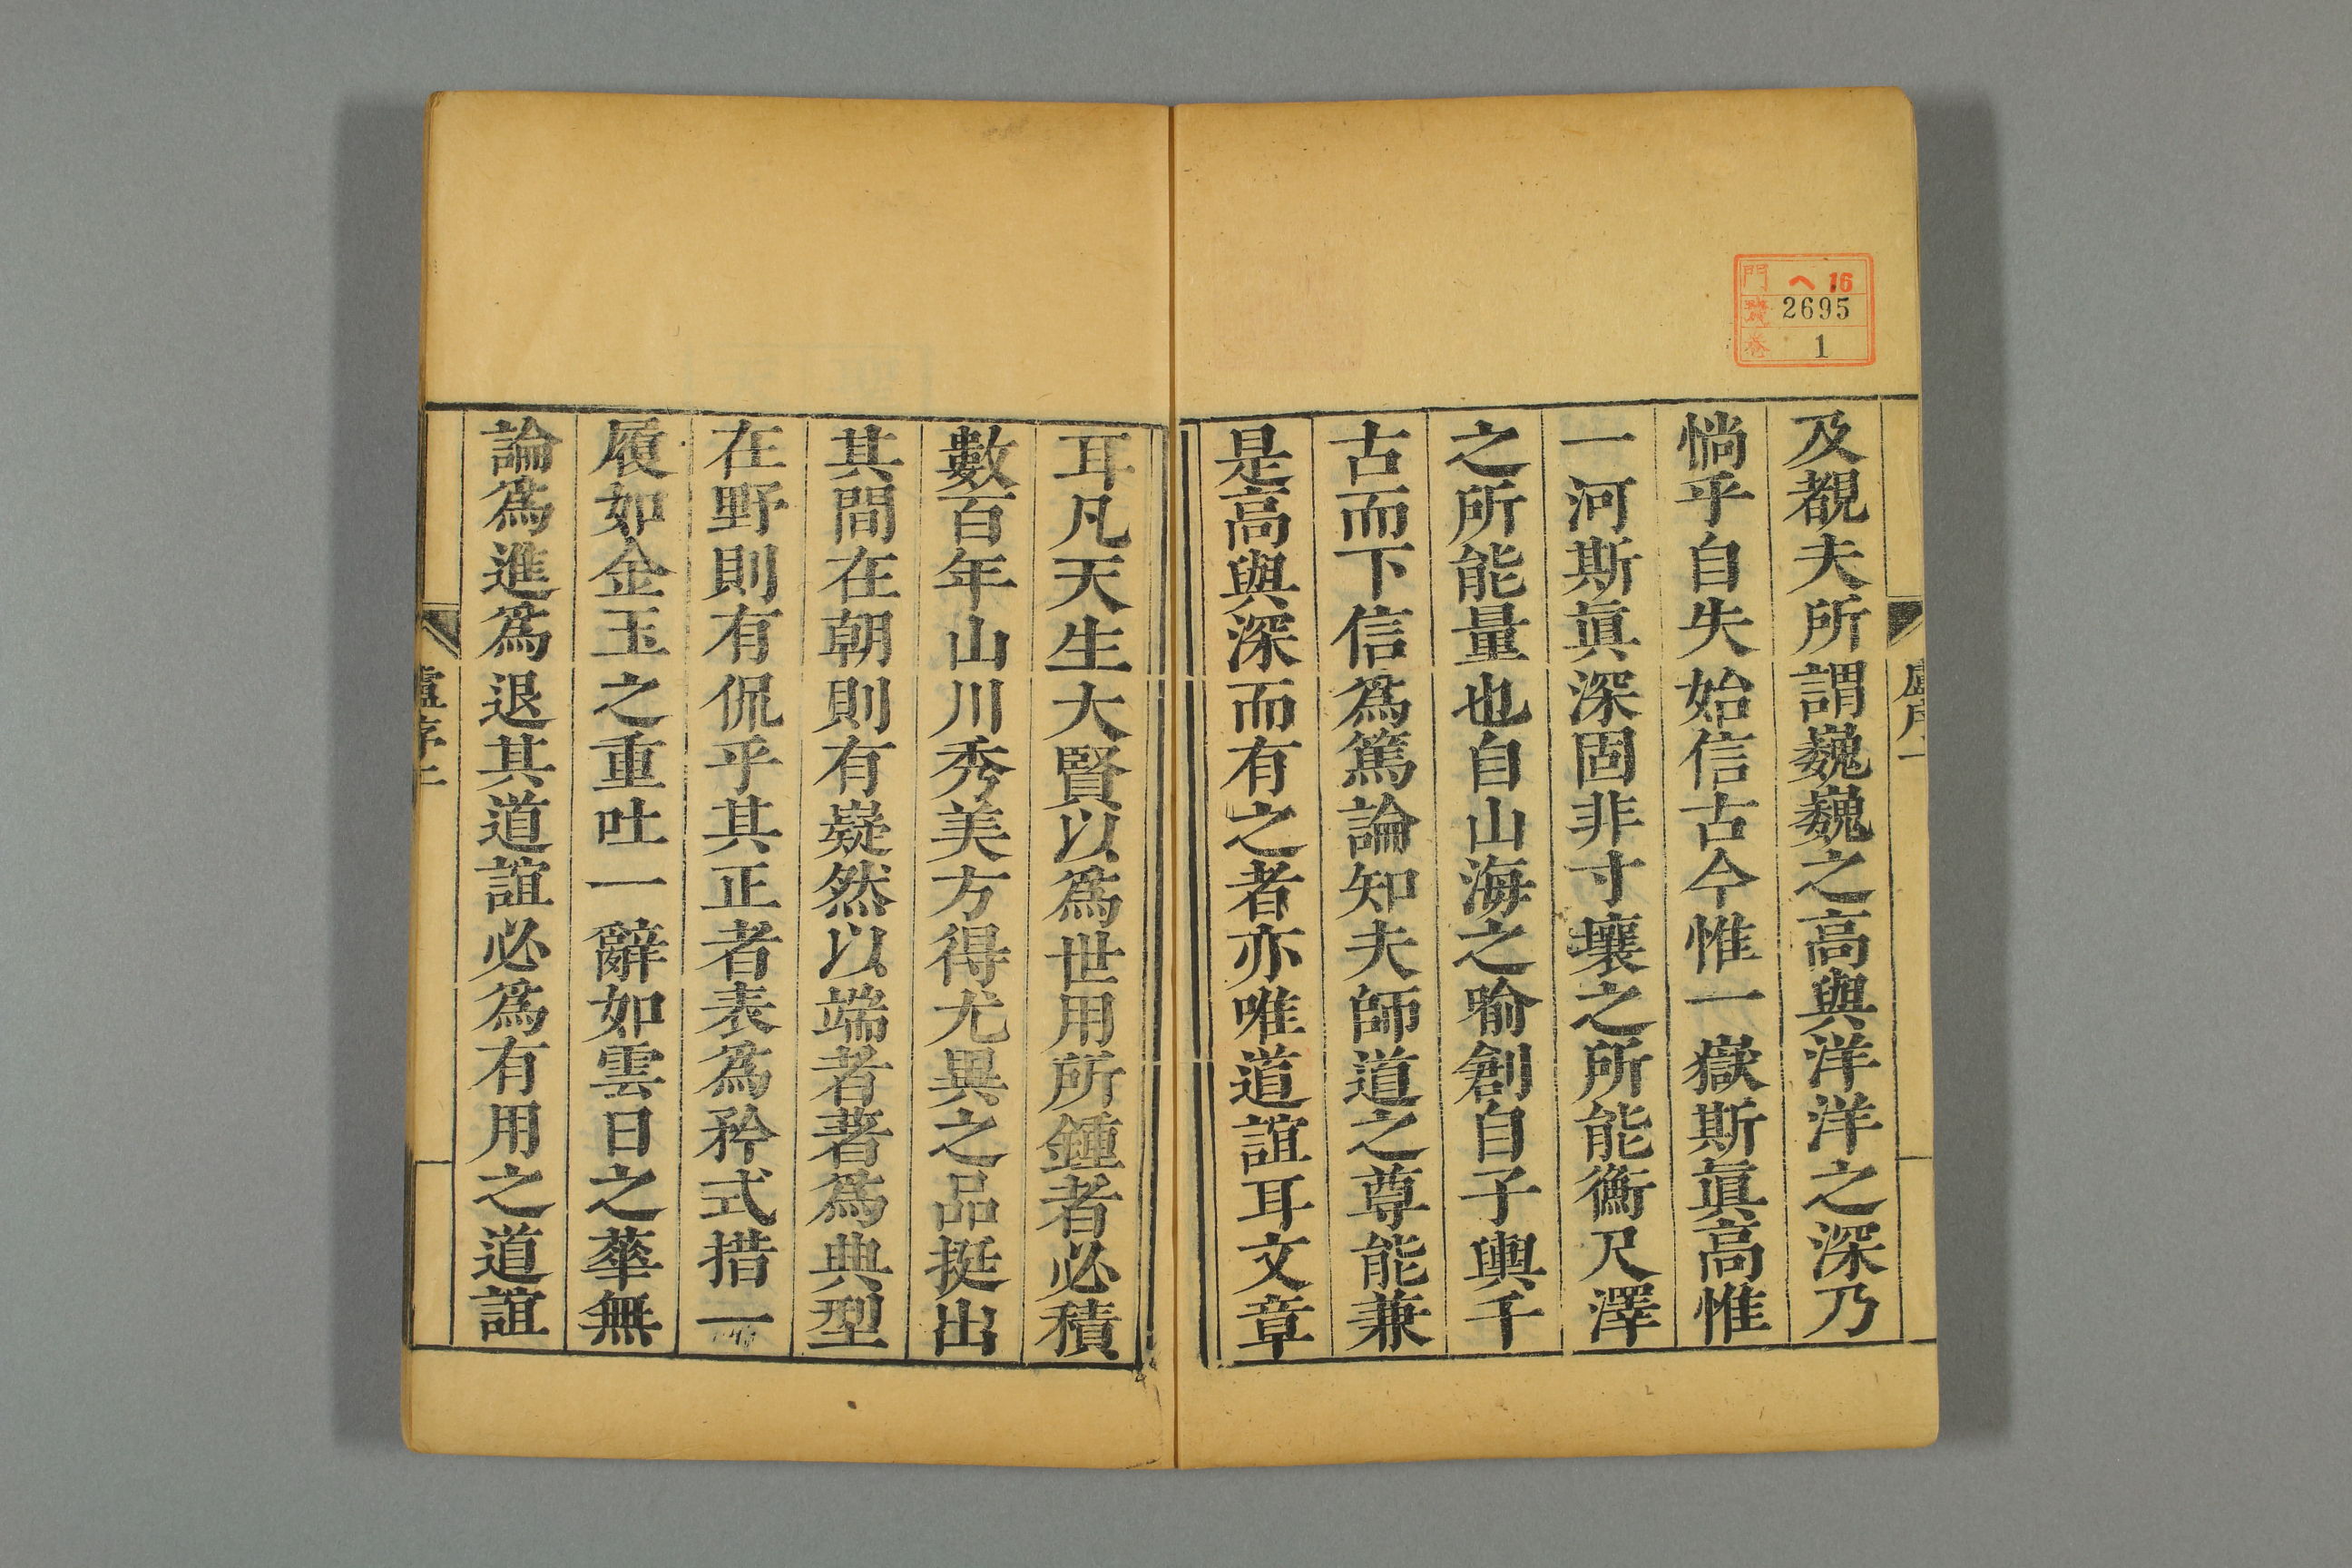 門 ヘ 16
號 2695
卷 1
及覩夫所謂巍巍之高與洋洋之深乃
惝乎自失始信古今惟一嶽斯眞高惟
一河斯眞深固非寸壤之所能衡尺澤
之所能量也自山海之喻創自子輿千
古而下信爲篤論知夫師道之尊能兼
是高與深而有之者亦唯道誼耳文章
盧序一
耳凡天生大賢以爲世用所鍾者必積
數百年山川秀美方得尤異之品挺出
其間在朝則有嶷然以端者著爲典型
在野則有侃乎其正者表爲矜式措一
履如金玉之重吐一辭如雲日之華無
論爲進爲退其道誼必爲有用之道誼
盧序二